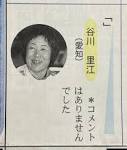 」
谷川 里江
(愛知)
*コメント
はありません
でした